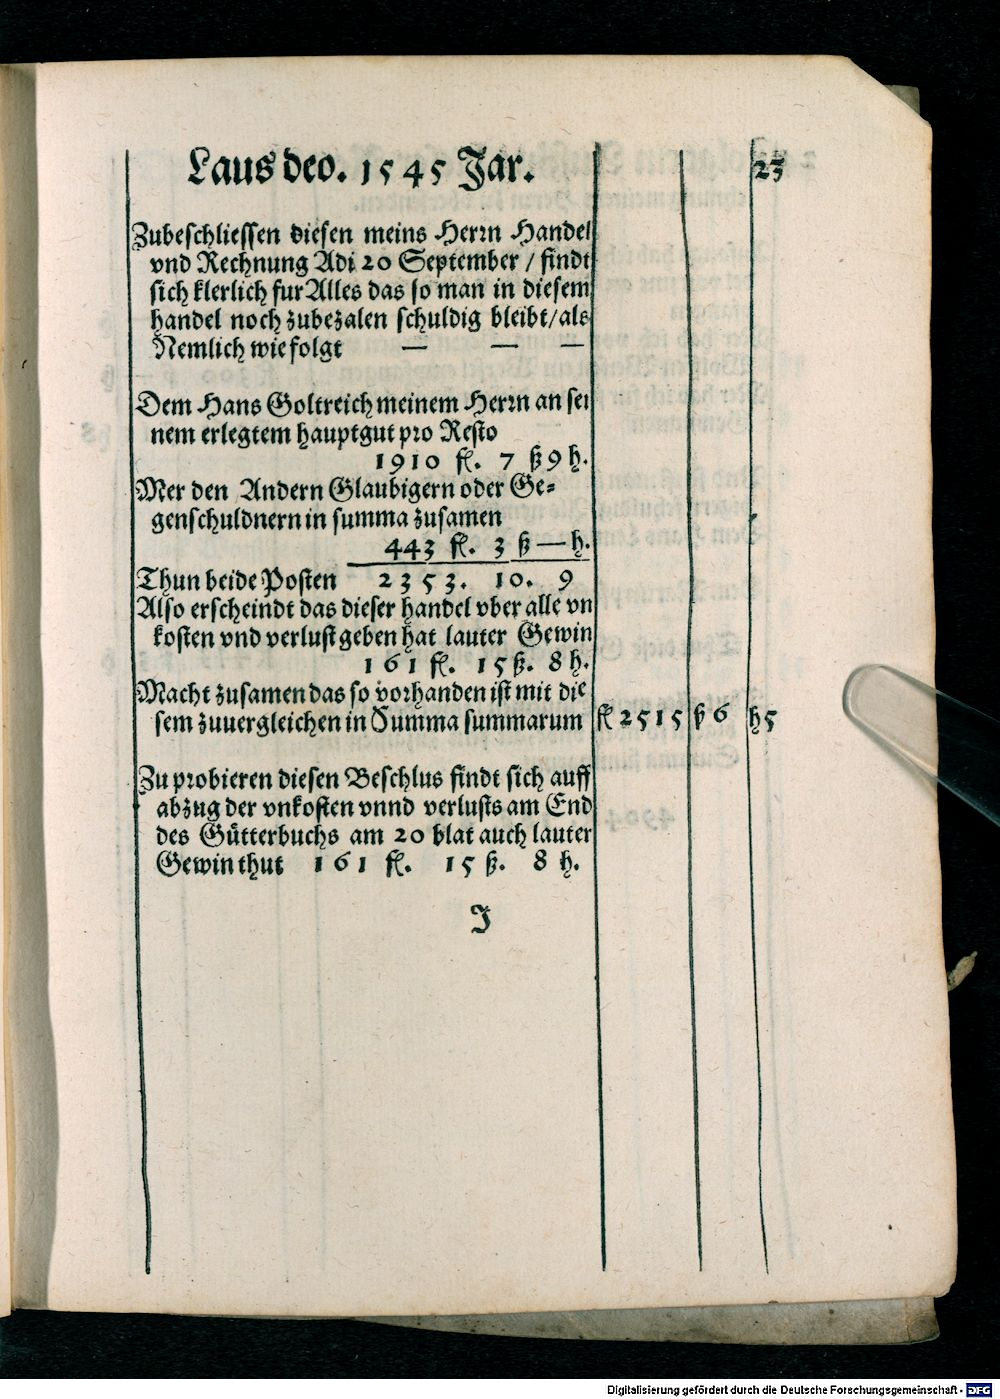 Laus deo. 1545 Jar. 23
Zubeschliessen diesen meins Herrn Handel
vnd Rechnung Adi 20 September / findt
sich klerlich fur Alles das so man in diesem
handel noch zubezalen schuldig bleibt / als
Nemlich wie folgt — — —
Dem Hans Goltreich meinem Herrn an sei
nem erlegtem hauptgut pro Resto
1910 fl. 7 ß 9 h.
Mer den Andern Glaubigern oder Ge⸗
genschuldnern in summa zusamen
443 fl. 3 ß — h.
Thun beide Posten 2353. 10. 9
Also erscheindt das dieser handel vber alle vn
kosten vnd verlust geben hat lauter Gewin
161 fl. 15 ß. 8 h.
Macht zusamen das so vorhanden ist mit die
sem zuuergleichen in Summa summarum fl 2515 ß 6 h 5
Zu probieren diesen Beschlus findt sich auff
abzug der vnkosten vnnd verlusts am End
des Gütterbuchs am 20 blat auch lauter
Gewin thut 161 fl. 15 ß. 8 h.
J
Digitalisierung gefördert durch die Deutsche Forschungsgemeinschaft - DFG